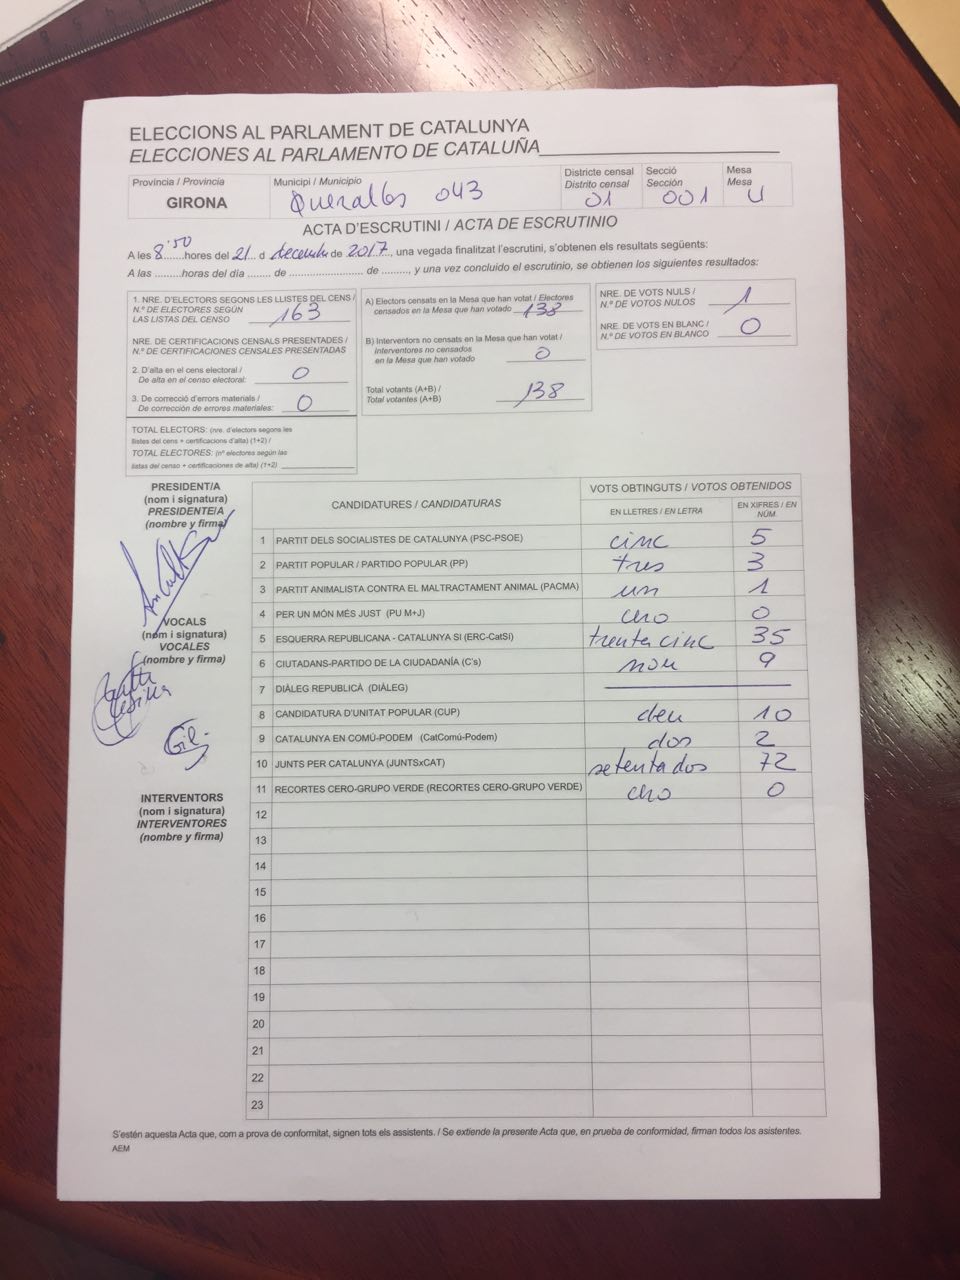 ELECCIONS AL PARLAMENT DE CATALUNYA
ELECCIONES AL PARLAMENTO DE CATALUÑA
Província / Provincia
GIRONA
Municipi / Municipio
Queralbs 043
Districte censal
Distrito censal
01
Secció
Sección
001
Mesa
Mesa
U
ACTA D'ESCRUTINI / ACTA DE ESCRUTINIO
A les 8'50 hores del 21 d decembre de 2017, una vegada finalitzat l'escrutini, s'obtenen els resultats següents:
A las ......... horas del día ....... de ......................... de ........., y una vez concluido el escrutinio, se obtienen los siguientes resultados:
1. NRE. D'ELECTORS SEGONS LES LLISTES DEL CENS /
N.º DE ELECTORES SEGÚN
LAS LISTAS DEL CENSO 163
NRE. DE CERTIFICACIONS CENSALS PRESENTADES /
N.º DE CERTIFICACIONES CENSALES PRESENTADAS
2. D'alta en el cens electoral /
De alta en el censo electoral: 0
3. De correcció d'errors materials /
De corrección de errores materiales: 0
TOTAL ELECTORS: (nre. d'electors segons les
llistes del cens + certificacions d'alta) (1+2) /
TOTAL ELECTORES: (nº electores según las
listas del censo + certificaciones de alta) (1+2)
A) Electors censats en la Mesa que han votat / Electores
censados en la Mesa que han votado 138
B) Interventors no censats en la Mesa que han votat /
Interventores no censados
en la Mesa que han votado 0
Total votants (A+B) /
Total votantes (A+B) 138
NRE. DE VOTS NULS /
N.º DE VOTOS NULOS 1
NRE. DE VOTS EN BLANC /
N.º DE VOTOS EN BLANCO 0
PRESIDENT/A
(nom i signatura)
PRESIDENTE/A
(nombre y firma)
VOCALS
(nom i signatura)
VOCALES
(nombre y firma)
Gil
INTERVENTORS
(nom i signatura)
INTERVENTORES
(nombre y firma)
CANDIDATURES / CANDIDATURAS
VOTS OBTINGUTS / VOTOS OBTENIDOS
EN LLETRES / EN LETRA
EN XIFRES / EN NÚM.
1 PARTIT DELS SOCIALISTES DE CATALUNYA (PSC-PSOE) cinc 5
2 PARTIT POPULAR / PARTIDO POPULAR (PP) tres 3
3 PARTIT ANIMALISTA CONTRA EL MALTRACTAMENT ANIMAL (PACMA) un 1
4 PER UN MÓN MÉS JUST (PU M+J) cero 0
5 ESQUERRA REPUBLICANA - CATALUNYA SI (ERC-CatSI) trenta cinc 35
6 CIUTADANS-PARTIDO DE LA CIUDADANÍA (C's) nou 9
7 DIÀLEG REPUBLICÀ (DIÀLEG)
8 CANDIDATURA D'UNITAT POPULAR (CUP) deu 10
9 CATALUNYA EN COMÚ-PODEM (CatComú-Podem) dos 2
10 JUNTS PER CATALUNYA (JUNTSxCAT) setenta dos 72
11 RECORTES CERO-GRUPO VERDE (RECORTES CERO-GRUPO VERDE) cero 0
12
13
14
15
16
17
18
19
20
21
22
23
S'estén aquesta Acta que, com a prova de conformitat, signen tots els assistents. / Se extiende la presente Acta que, en prueba de conformidad, firman todos los asistentes.
AEM